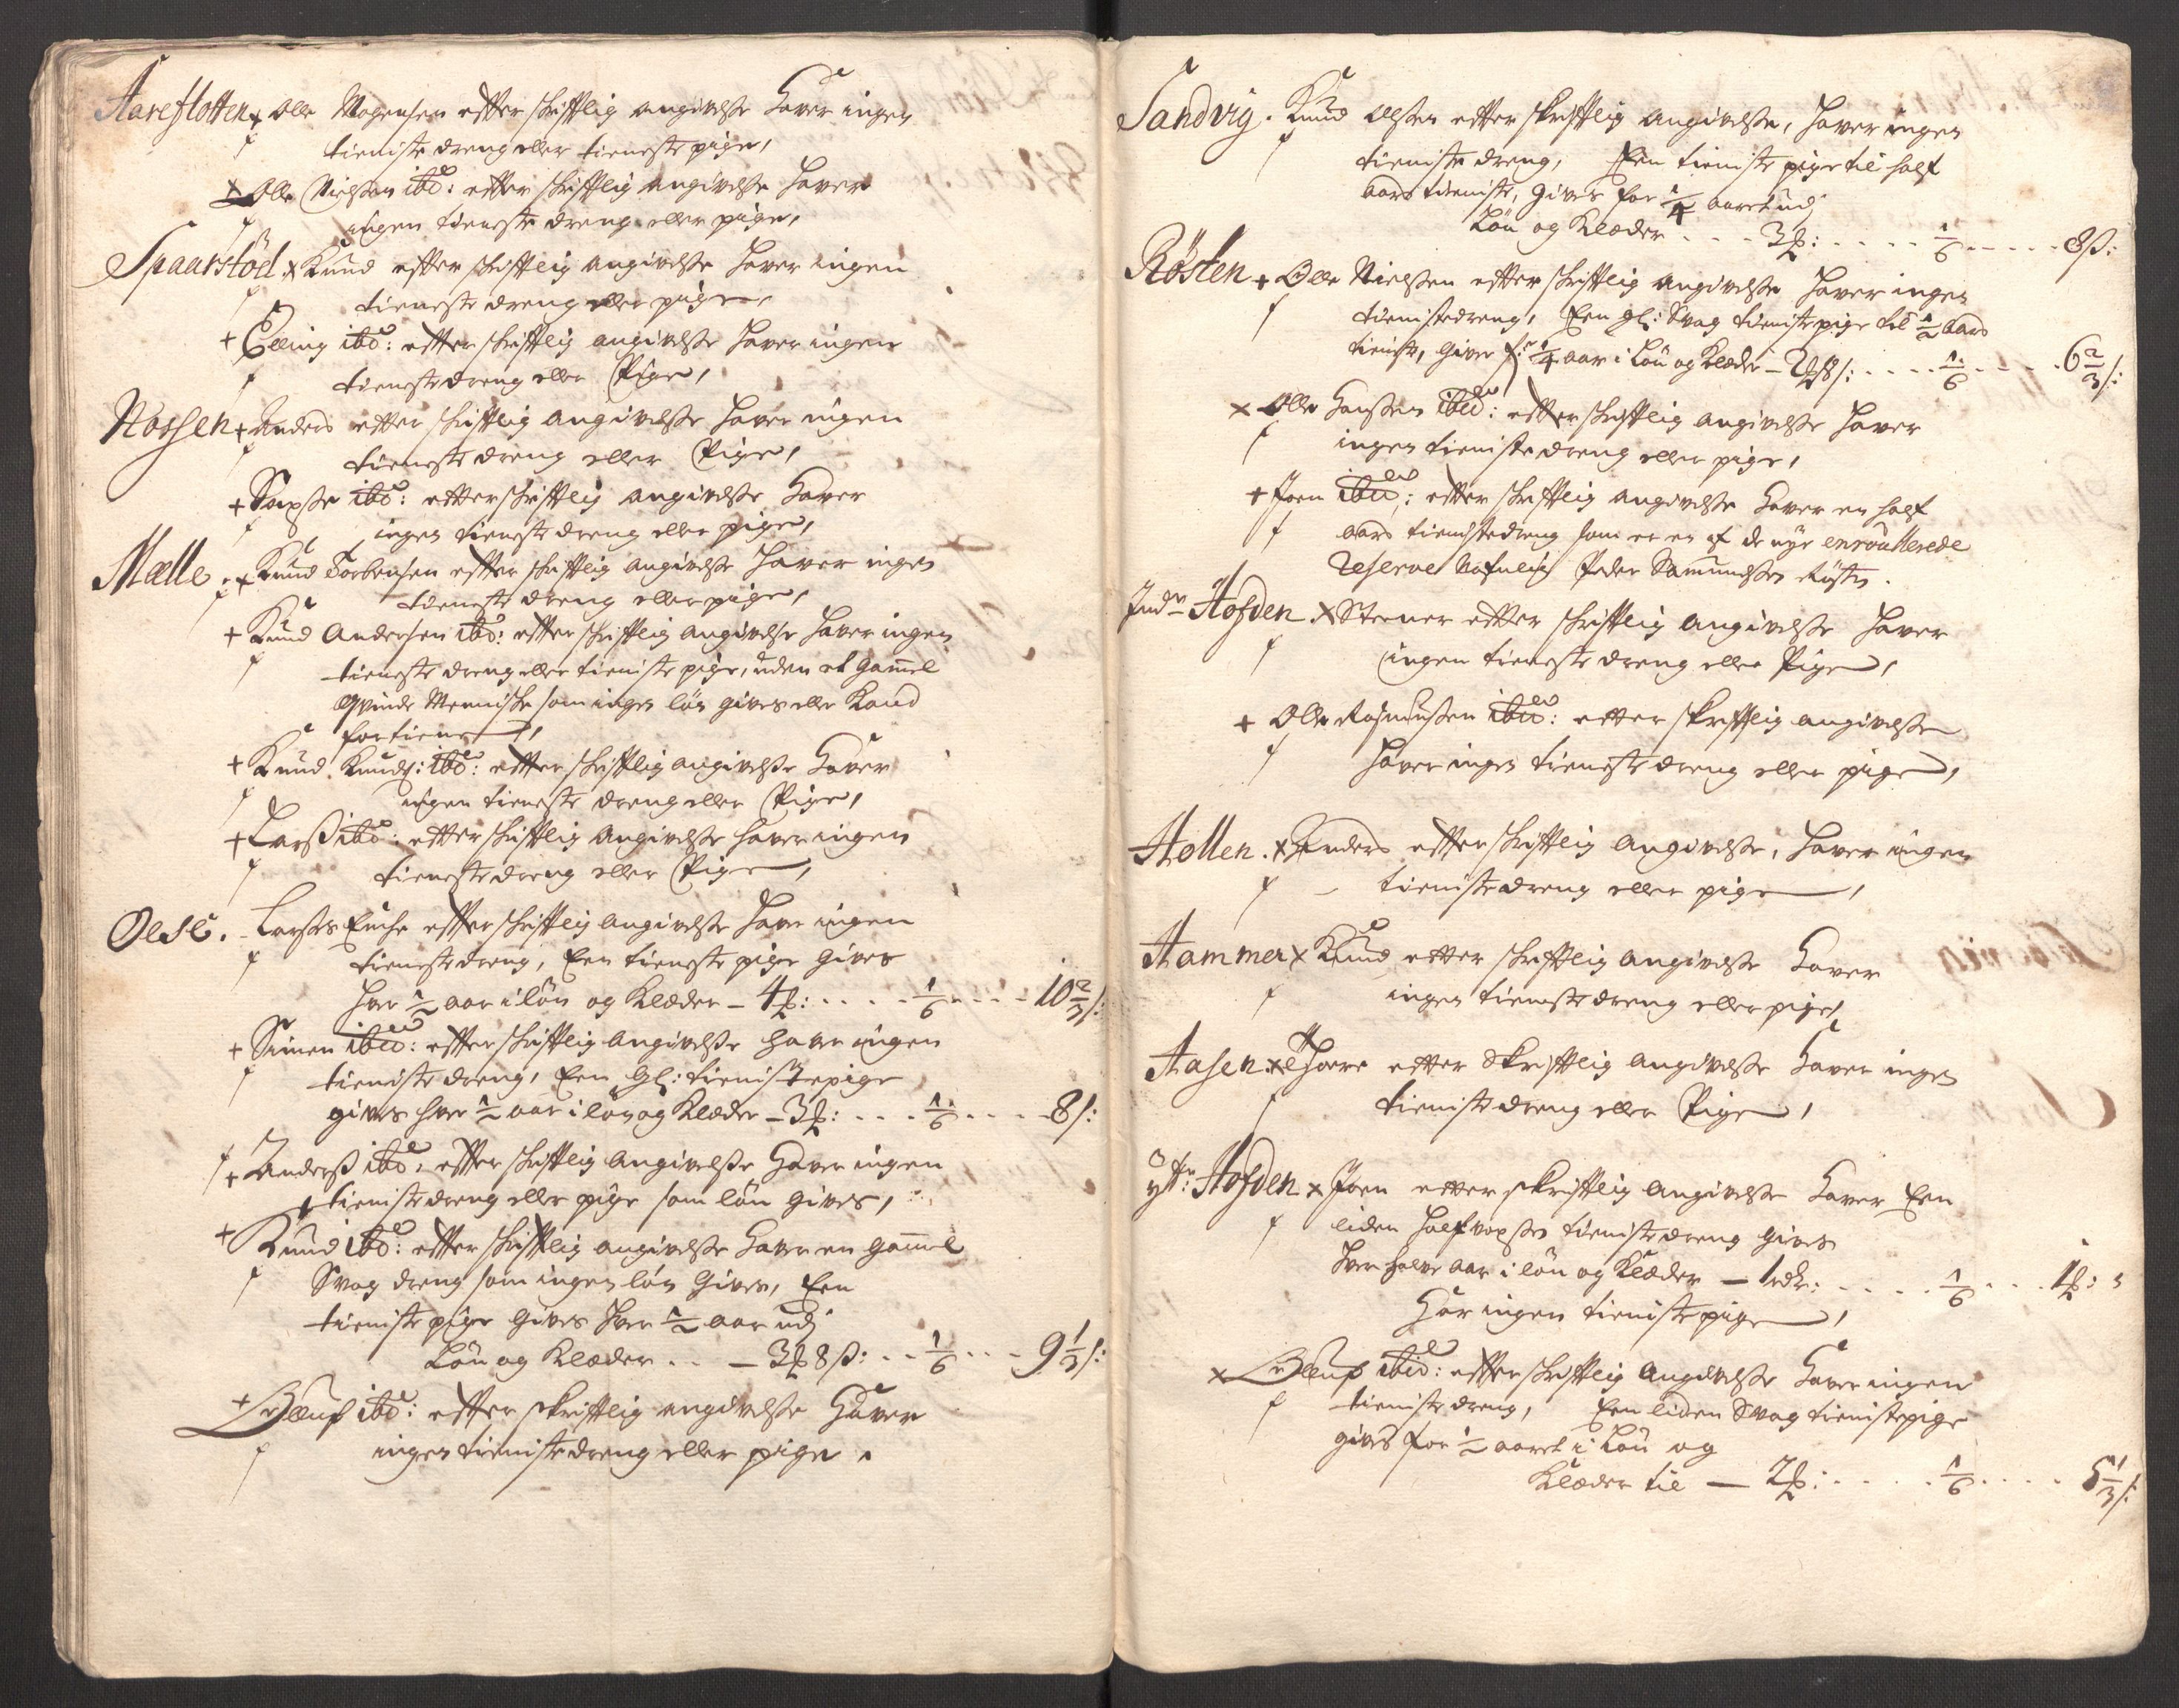 Aareflotten + Olle Mogensen efter schrifftlig angivelsse hafver ingen
tieniste dreng eller tieneste pige,
+ Olle Nielsen ibd: efter schrifftlig angivelsse hafver
ingen tieneste dreng eller pige,
Spaarstöd + Knud efter schrifftlig angivelsse hafver ingen
tieneste dreng eller pige,
+ Elling ibd: efter schrifftlig angivelsse hafver ingen
tieneste dreng eller Pige,
Nossen + Anders efter schrifftlig angivelsse hafver ingen
tieneste dreng eller Pige,
+ ibd: efter schrifftlig angivelsse hafver
ingen tieneste dreng eller pige,
Mælle + Knud Torbensen efter schrifftlig angivelsse hafver ingen
tieneste dreng eller pige,
+ Knud Andersen ibd: efter schrifftlig angivelse hafver ingen
tieneste dreng eller tieniste pige, uden et gammel
Qvinde Menniske som ingen lön gives eller Kand
fortiene,
+ Knud Knuds: ibd: efter schrifftlig angivelsse hafver
ingen tieneste dreng eller Pige,
+ Larss ibd: efter schrifftlig angivelsse hafver ingen
tieneste dreng eller Pige,
Olsc. Larsses Encke efter schrifftlig angivelsse hafver ingen
tieneste dreng, Een tieneste pige gives
hver 1/2 aar i lön og Klæder – 4 .... 1/6 .... 10 2/3 s:
+ Simen ibid: efter schrifftlig angivelsse hafver ingen
tieniste dreng, Een gl: tieniste pige
gives hver 1/2 aar i lön og Klæder – 3 .... 1/6 .... 8 s:
+ Anderss ibd: efter schrifftlig angivelsse hafver ingen
tieniste dreng eller pige som lön gives,
+ Knud ibd: efter schrifftlig angivelsse hafver en gammel
Svag dreng som ingen lön gives, Een
tieniste pige gives hver 1/2 aar udj
Lön og Klæder .. – 3 8 ß: .. 1/6 ... 9 1/3 s:
+ Oluf ibd: efter skrifftlig angivelsse hafver
ingen tieniste dreng eller pige.
Sandvig. Knud Olssen efter skrifftlig angivelsse, hafver ingen
tieniste dreng, Een tieniste pige til half
aars tieniste, gives for 1/4 aaret udj
Lön og Klæder ... 3 .... 1/6 .... 8 ß:
Rösten + Olle Nielssen efter schrifftlig angivelsse hafver ingen
tienistedreng, Een gl: Svag tieniste pige til 1/2 aars
tienist, giver f: 1/4 aar i Lön og Klæder – 2 8 s: .... 1/6 .... 6 2/3 s:
+ Olle Hanssen ibid: efter schrifftlig angivelsse hafver
ingen tieniste dreng eller pige,
+ Joen ibid: efter schrifftlig angivelsse hafver en half
aars tienistedreng som er en af de nye enroullerede
Reserve Nafnlig Peder Samundssen Rösten.
Indr Hofden + Steener efter schrifftlig angivelsse hafver
ingen tieneste dreng eller Pige,
+ Olle Rasmussen ibid: efter skrifftlig angivelsse
hafver ingen tieneste dreng eller pige,
Hollen. + Anders efter schrifftlig angivelsse, hafver ingen
tieniste dreng eller pige,
Hammer + Knud efter schrifftlig angivelsse hafver
ingen tieneste dreng eller pige,
Aasen. + Thore efter Skrifftlig angivelsse hafver ingen
tieniste dreng eller Pige,
ytr: Hofden + Joen efter skrifftlig angivelsse hafver Een
liden halfvoxsen tieniste dreng gives
hver halve aar i lön og Klæder – 1 rdr: .... 1/6 ... 1
Har ingen tieniste pige,
+ Oluf ibid: efter schrifftlig angivelsse hafver ingen
tieniste dreng, Een liden Svag tieniste pige
gives for 1/2 aaret i Lön og
Klæder til – 2 .... 1/6 .... 5 1/3 s: